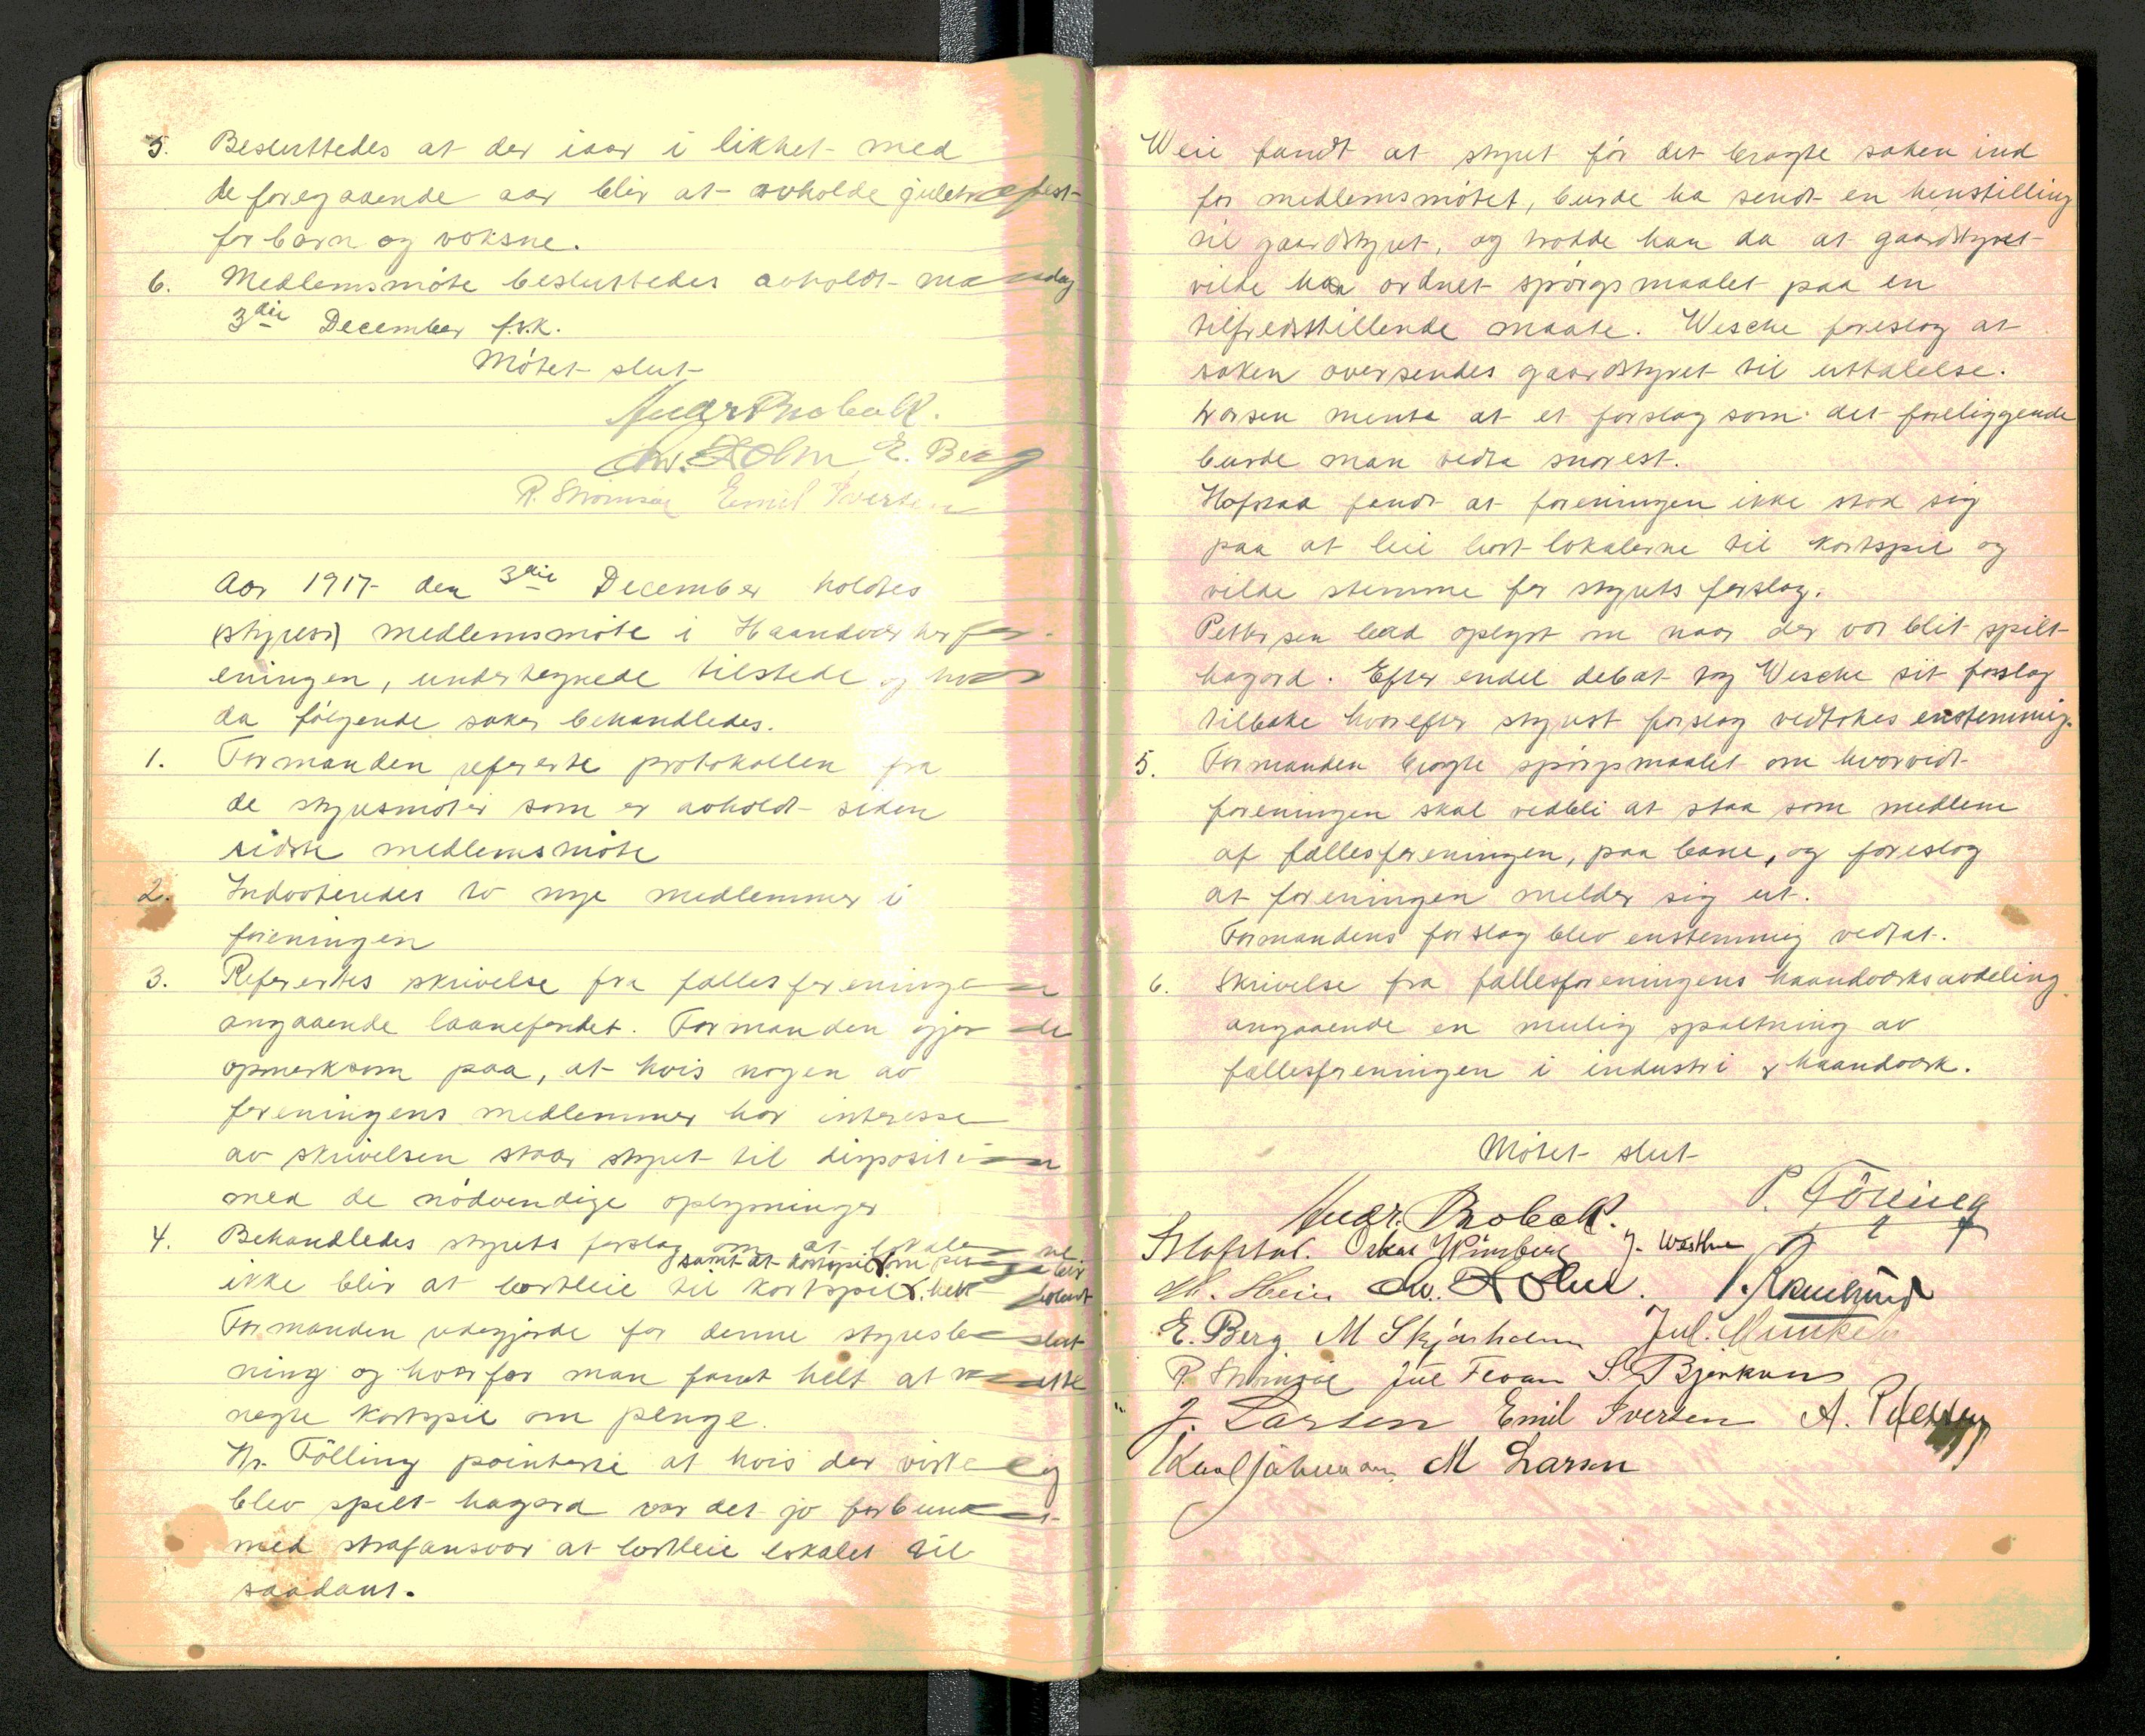 5. Besluttedes at der iaar i likhet med
de foregaaende aar blir at avholde juletræfest
for barn og voksne.
6. Medlemsmöte besluttedes avholdt mandag
3die December f.v.k.
Mötet slut
Andr Brobakk.
Chr. Holm E. Berg
R. Strömsöe Emil Iversen
Aar 1917 den 3die December holdtes
(styres) medlemsmöte i Haandverkerfor-
eningen, undertegnede tilstede og hvor
da fölgende saker behandledes.
1. Formanden refererte protokollen fra
de styresmöter som er avholdt siden
sidste medlemsmöte
2. Indvoteredes to nye medlemmer i
foreningen
3. Referertes skrivelse fra fællesforeningen
angaaende laanefondet. Formanden gjorde
opmerksom paa, at hvis nogen av
foreningens medlemmer har interesse
av skrivelsen staar styret til disposition
med de nödvendige oplysninger
4. Behandledes styrets forslag om at lokalerne
samt at kortspil om penge blir
ikke blir at bortleie til kortspil. helt forbudt
Formanden redegjorde for denne styresbeslut
ning og hvorfor man fant helt at maatte
negte kortspil om penge.
Hr. Fölling pointerte at hvis der virkelig
blev spilt hagard var det jo forbundet
med strafansvar at bortleie lokalet til
saadant.
Weie fandt at styret för det bragte saken ind
for medlemsmötet, burde ha sendt en henstilling
til gaardstyret, og trodde han da at gaardstyret
vilde ha ordnet spörgsmaalet paa en
tilfredsstillende maate. Wesche foreslog at
saken oversendes gaardstyret til uttalelse.
Larsen mente at et forslag som det foreliggende
burde man vedta snarest.
Hofstad fandt at foreningen ikke stod sig
paa at leie bort lokalerne til kortspil og
vilde stemme for styrets forslag.
Pettersen bad oplyst om naar der var blit spilt
hagard. Efter endel debat tog Wesche sit forslag
tilbake hvorefter styrets forslag vedtokes enstemmig.
5. Formanden bragte spörgsmaalet om hvorvidt
foreningen skal vedbli at staa som medlem
af fællesforeningen, paa bane, og foreslog
at foreningen melder sig ut.
Formandens forslag blev enstemmig vedtat.
6. Skrivelse fra fællesforeningens haandverksavdeling
angaaende en mulig spaltning av
fællesforeningen i industri & haandverk.
Mötet slut
Andr. Brobakk. P. Fölling
Hofstad. Oskar J. Westhe
Chr. Holm.
E. Berg M Skjærholm Jul. Munkeby
R Strömsöe S. Bjerkaas
J. Larsen Emil Iversen A. Pettersen
M Larsen